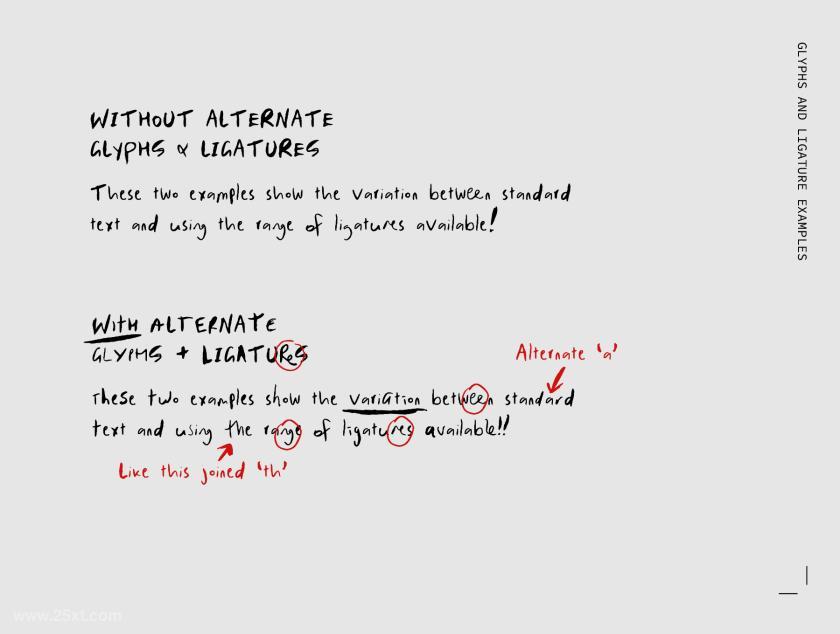 WITHOUT ALTERNATE
GLYPHS & LIGATURES
These two examples show the variation between standard
text and using the range of ligatures available!
WITH ALTERNATE
GLYPHS + LIGATURES
Alternate 'a'
These two examples show the variation between standard
text and using the range of ligatures available!!
Like this joined 'th'
GLYPHS AND LIGATURE EXAMPLES
www.25xt.com